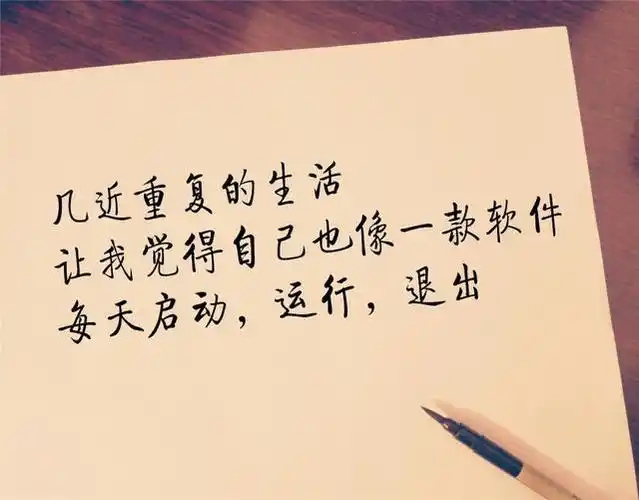 几近重复的生活
让我觉得自己也像一款软件
每天启动，运行，退出